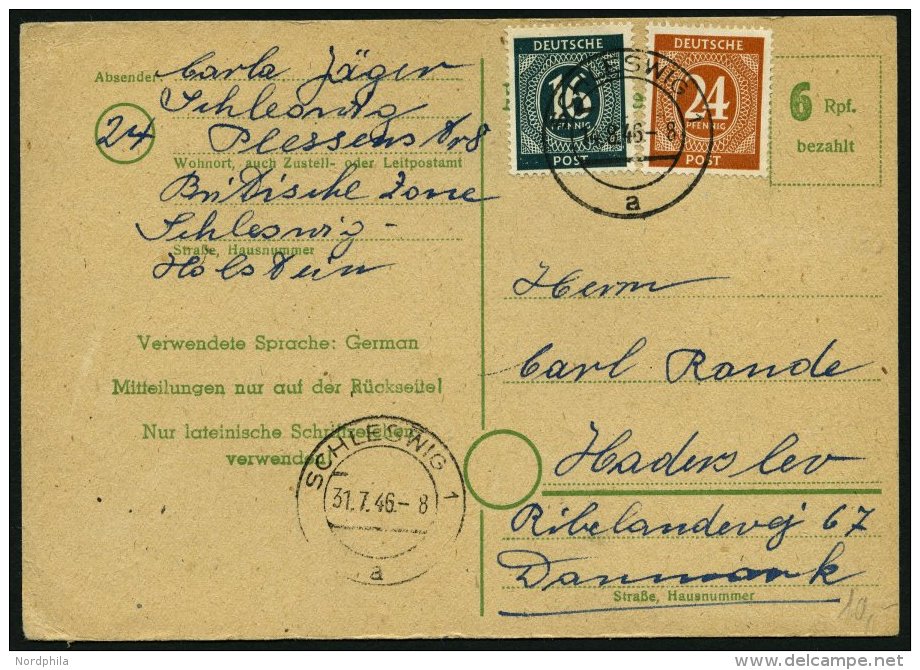 Absender Carla Jäger
Schleswig
24 Plessenstr 8
Wohnort, auch Zustell- oder Leitpostamt
Britische Zone
Schleswig-
Straße, Hausnummer
Holstein
Verwendete Sprache: German
Mitteilungen nur auf der Rückseite!
Nur lateinische Schriftzeichen
verwenden!
SCHLESWIG 1
31.7.46.-8
a
DEUTSCHE
16
PFENNIG
POST
DEUTSCHE
24
PFENNIG
POST
a
6 Rpf.
bezahlt
Herrn
Carl Rande
Haderslev
Ribelandevej 67
Danmark
Straße, Hausnummer
10,-
Nordphila
delcampe.net